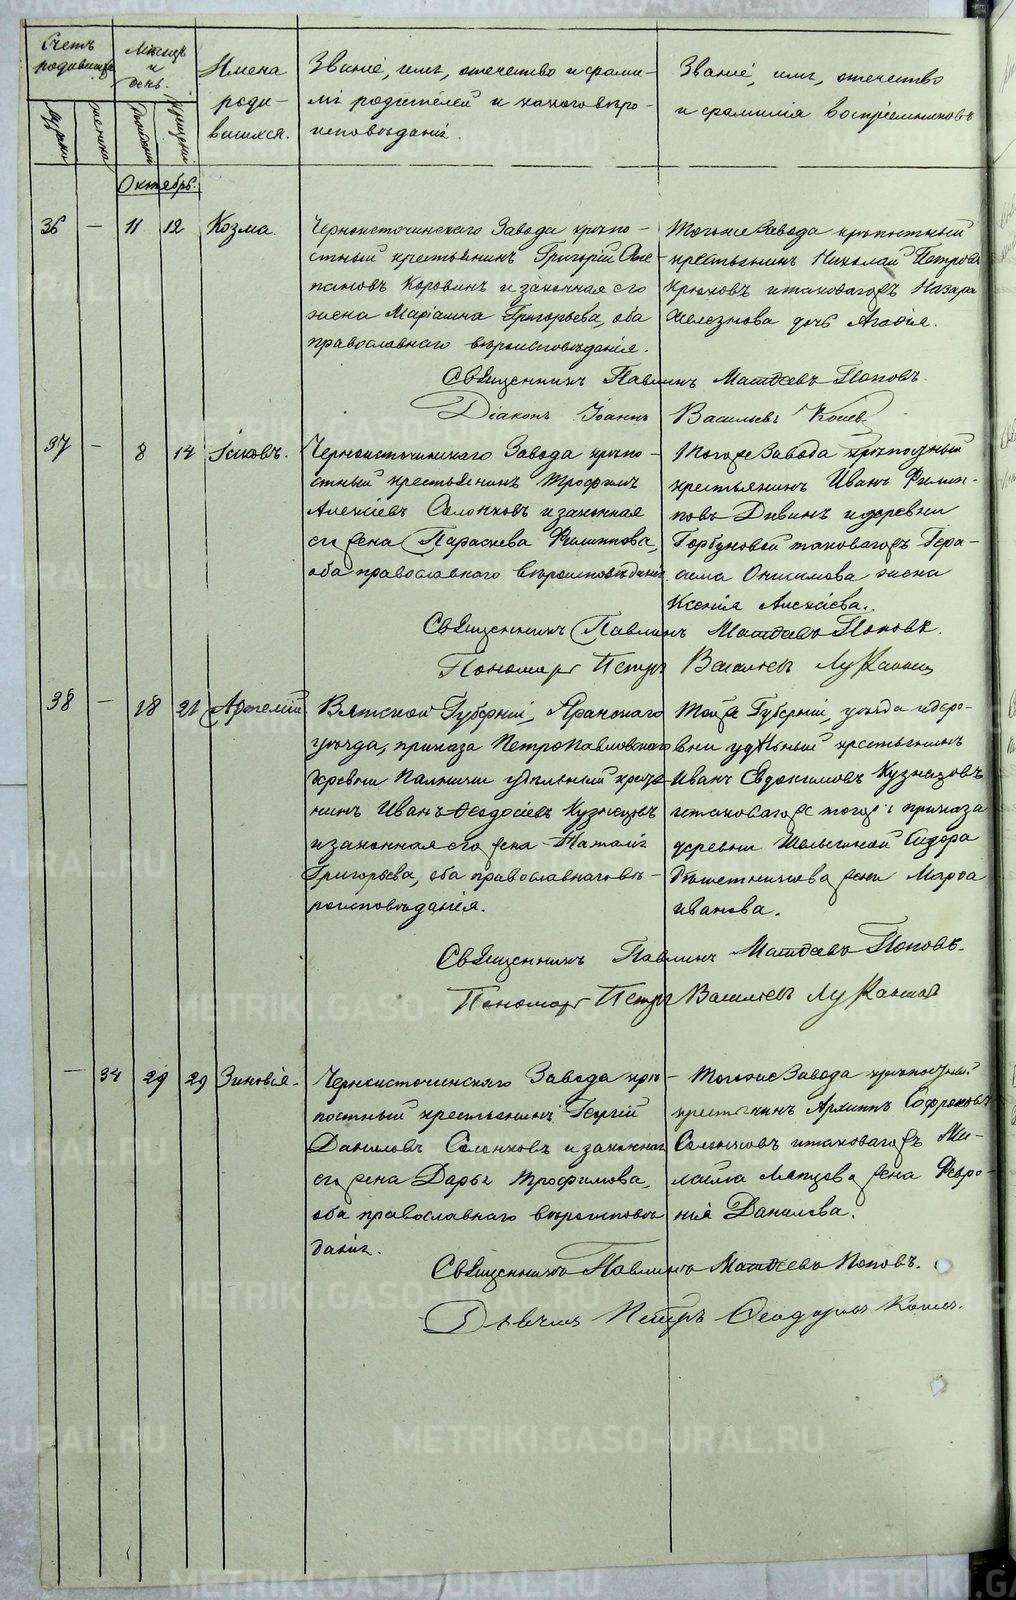 Счетъ родившихся
Мѣсяцъ и день.
Имена роди-
вшихся.
Званіе, имя, отечество и фами-
лія родителей и какого вѣро-
исповѣданія.
Званіе, имя, отечество
и фамилія воспріемниковъ
мужска
женска
рожденія
крещенія
Октябрь.
36 — 11 12 Козма.
Черноисточинскаго Завода крѣпо-
стный крестьянинъ Григорій Сте-
пановъ Коровинъ и законная его
жена Маріамна Григорьева, оба
православнаго вѣроисповѣданія.
Тогоже Завода крѣпостный
крестьянинъ Николай Петровъ
Крюковъ и таковагожъ Назара
Железнова дочь Агафія.
Священникъ Павлинъ Матѳеевъ Поповъ.
Діаконъ Іоаннъ Васильевъ
37 — 8 14 Іаковъ.
Черноисточинскаго Завода крѣпо-
стный крестьянинъ Трофимъ
Алексѣевъ Солонковъ и законная
его жена Параскева Филиппова,
оба православнаго вѣроисповѣданія
Тогоже Завода крѣпостный
крестьянинъ Иванъ Филип-
повъ Дивинъ и деревни
Горбуновой таковагожъ Гера-
сима Онисимова жена
Ксенія Алексѣева.
Священникъ Павлинъ Матѳеевъ Поповъ.
Пономарь Петръ Васильевъ Луканинъ
38 — 18 21 Арѳемій
Вятской Губерніи, Яранскаго
уѣзда, приказа Петропавловскаго
деревни удѣльный крестья-
нинъ Иванъ Ѳеодосіевъ Кузнецовъ
и законная его жена Наталія
Григорьева, оба православнаго вѣ-
роисповѣданія.
Тойже Губерніи, уѣзда и дере-
вни удѣльный крестьянинъ
Иванъ Евдокимовъ Кузнецовъ
и таковагоже тогожъ приказа
деревни Сидора
жена Марѳа
Иванова.
Священникъ Павлинъ Матѳеевъ Поповъ.
Пономарь Петръ Васильевъ Луканинъ
— 34 29 29 Зиновія.
Черноисточинскаго Завода крѣ-
постный крестьянинъ Георгій
Даниловъ Солонковъ и законная
его жена Дарья Трофимова,
оба православнаго вѣроисповѣ
данія.
Тогоже Завода крѣпостный
крестьянинъ Архипъ Софроновъ
Солонковъ и таковагожъ Ми-
хаила жена Февро-
нія Данилова.
Священникъ Павлинъ Матѳеевъ Поповъ.
Дьячекъ Петръ Ѳеодоровъ
METRIKI.GASO-URAL.RU